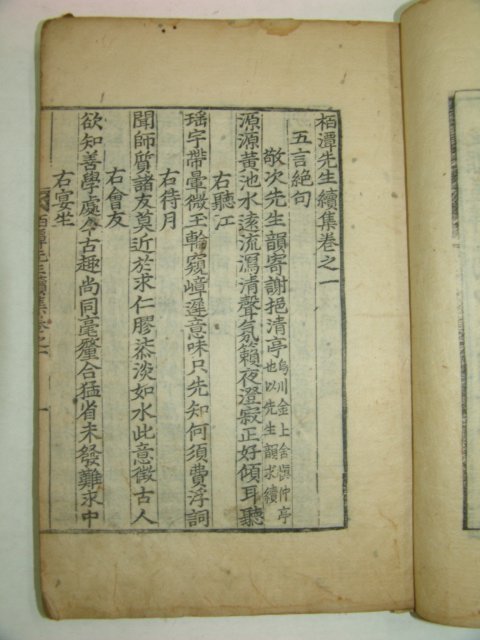 栢潭先生續集卷之一
五言絶句
敬次先生韻寄謝挹清亭烏川金上舍愼仲亭
也以先生韻求續
源源黃池水遠流瀉清聲氛籟夜澄寂正好傾耳聽
右聽江
瑶宇帶暈微玉輪窺嶂遲意味只先知何須費浮詞
右待月
聞師質諸友莫近於求仁膠漆淡如水此意徵古人
右會友
欲知善學處今古趣尚同毫釐合猛省未發難求中
右宴坐
栢潭先生續集卷之一